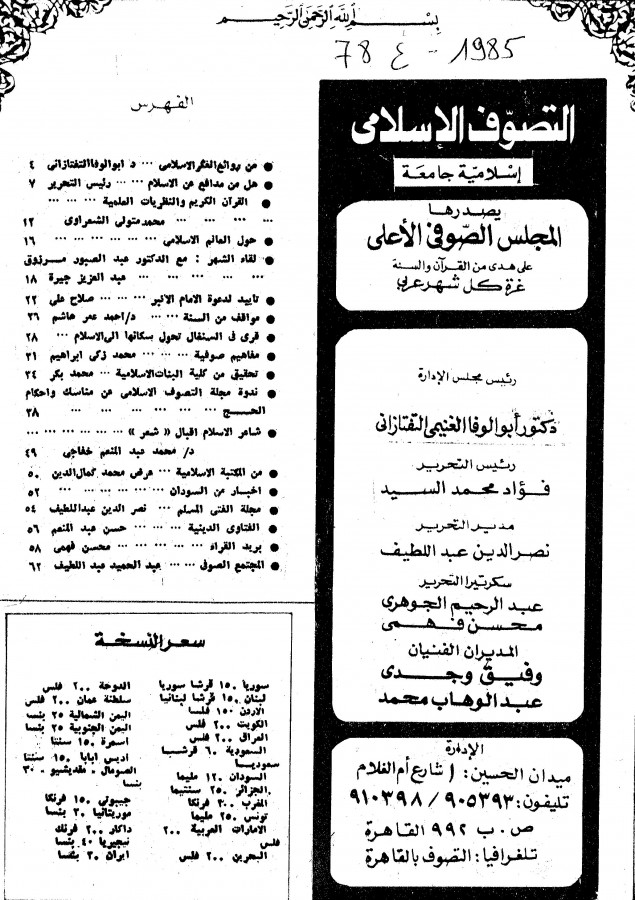 بسم الله الرحمن الرحيم
78 ع - 1985
التصوف الإسلامى
إسلامية جامعة
يصدرها
المجلس الصوفى الأعلى
على هدى من القرآن والسنة
غرة كل شهر عربى
رئيس مجلس الإدارة
دكتور أبو الوفا الغنيمى التفتازانى
رئيس التحرير
فؤاد محمد السيد
مدير التحرير
نصر الدين عبد اللطيف
سكرتيرا التحرير
عبد الرحيم الجوهرى
محسن فهمى
المديران الفنيان
وفيق وجدى
عبد الوهاب محمد
الإدارة
ميدان الحسين: ١ شارع أم الغلام
تليفون: ٩٠٥٣٩٣ / ٩١٠٣٩٨
ص . ب ٩٩٢ القاهرة
تلغرافيا: التصوف بالقاهرة
الفهرس
● من روائع الفكر الاسلامى ... د. ابو الوفا التفتازانى ٤
● هل من مدافع عن الاسلام ... ... رئيس التحرير ٧
● القرآن الكريم والنظريات العلمية ... ... ...
... ... ... ... محمد متولى الشعراوى ١٢
● حول العالم الاسلامى ... ... ... ... ... ... ١٦
● لقاء الشهر : مع الدكتور عبد الصبور مرزوق
... ... ... ... ... عبد العزيز جيرة ١٨
● تاييد لدعوة الامام الاكبر ... ... ... صلاح على ٢٢
● مواقف من السنة ... ... د/احمد عمر هاشم ٢٦
● قرى فى السنغال تحول سكانها الى الاسلام ... ... ٢٨
● مفاهيم صوفية ... ... ... محمد زكى ابراهيم ٣١
● تحقيق من كلية البنات الاسلامية ... محمد بكر ٣٤
● ندوة مجلة التصوف الاسلامى عن مناسك واحكام
الحج ... ... ... ... ... ... ... ٣٨
● شاعر الاسلام اقبال « شعر » ... ... ... ... ...
د/ محمد عبد المنعم خفاجى ٤٩
● من المكتبة الاسلامية ... عرض محمد كمال الدين ٥٠
● اخبار من السودان ... ... ... ... ... ... ٥٢
● مجلة الفتى المسلم ... نصر الدين عبد اللطيف ٥٤
● الفتاوى الدينية ... ... ... حسن عبد المنعم ٥٦
● بريد القراء ... ... ... ... ... محسن فهمى ٥٨
● المجتمع الصوفى ... ... عبد الحميد عبد اللطيف ٦٢
سعر النسخة
سوريا ١٥٠ قرشا سوريا
لبنان ١٥٠ قرشا لبنانيا
الاردن ١٥٠ فلسا
الكويت ٢٠٠ فلس
العراق ٢٠٠ فلس
السعودية ٦٠ قرشا
سعوديا
السودان ١٢٠ مليما
الجزائر ٢٥٠ سنتيما
المغرب ٣٠٠ فرنكا
تونس ٢٥٠ مليما
الامارات العربية ٢٠٠
فلس
البحرين ٢٠٠ فلس
الدوحة ٢٠٠ فلس
سلطنة عمان ٢٠٠ فلس
اليمن الشمالية ٢٥ بنسا
اليمن الجنوبية ٢٥ بنسا
اسمرة ١٥٠ سنتا
اديس ابابا ١٥٠ سنتا
الصومال . مقديشيو . ٣٠
بنسا
جيبوتى ١٥٠ فرنكا
موريتانيا ٣٠ بنسا
داكار ٢٠٠ فرنك
نيجيريا ٤٠ بنسا
ايران ٣٠ بنسا